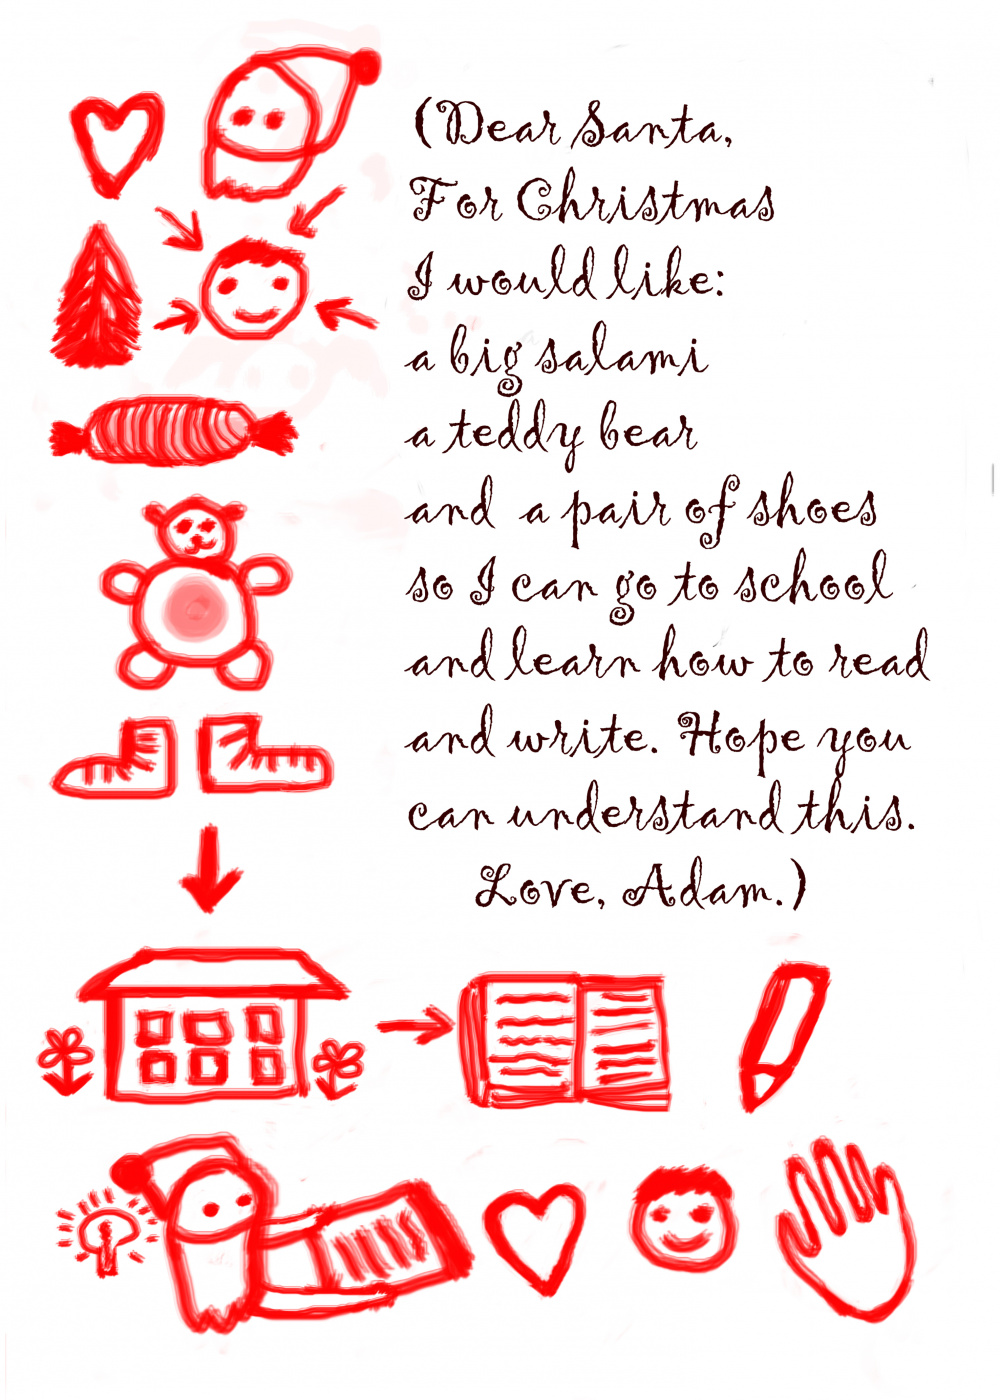 (Dear Santa,
For Christmas
I would like:
a big salami
a teddy bear
and a pair of shoes
so I can go to school
and learn how to read
and write. Hope you
can understand this.
Love, Adam.)